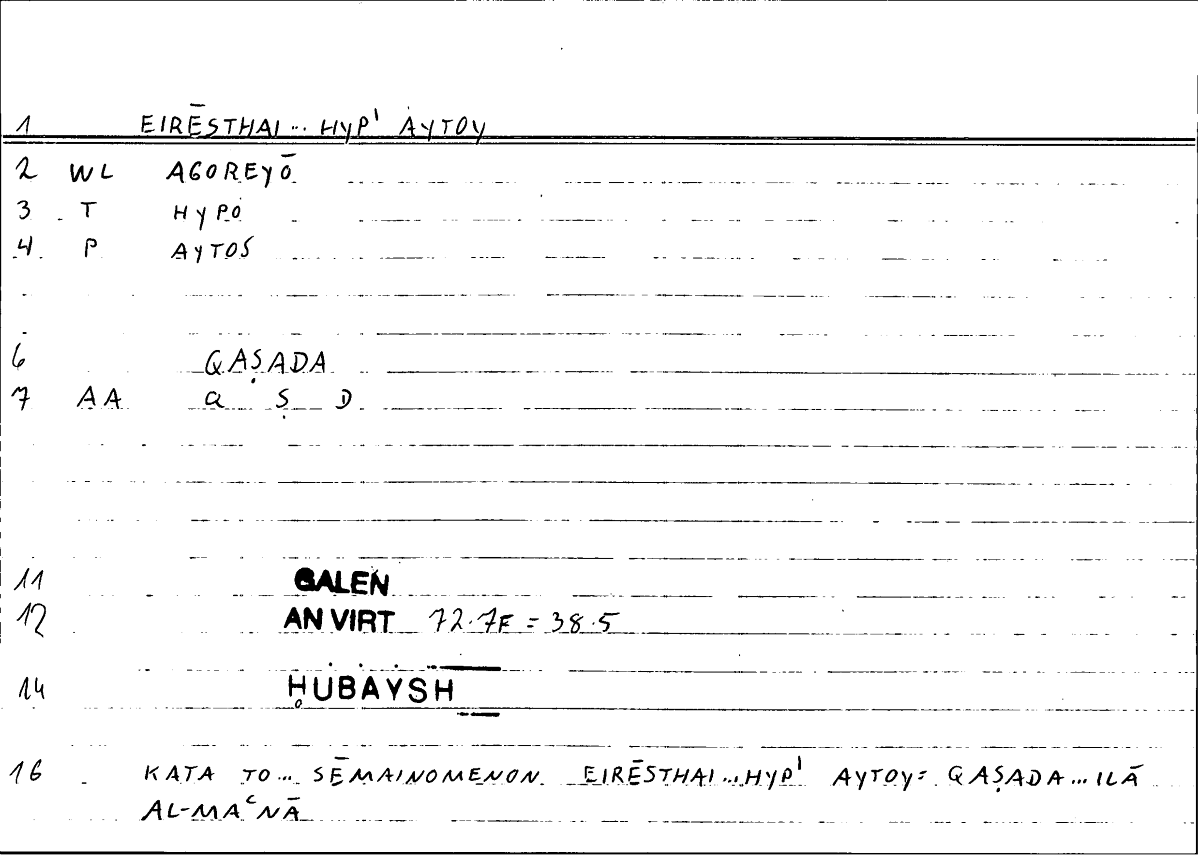 1 EIRĒSTHAI... HYP' AYTOY
2 WL AGOREYŌ
3 T HYPO
4 P AYTOS
6 QAṢADA
7 AA Q Ṣ D
11 GALEN
12 AN VIRT 72.7F = 38.5
14 ḤUBAYSH
16 KATA TO... SĒMAINOMENON EIRĒSTHAI...HYP' AYTOY= QAṢADA...ILĀ
AL-MAʿNĀ